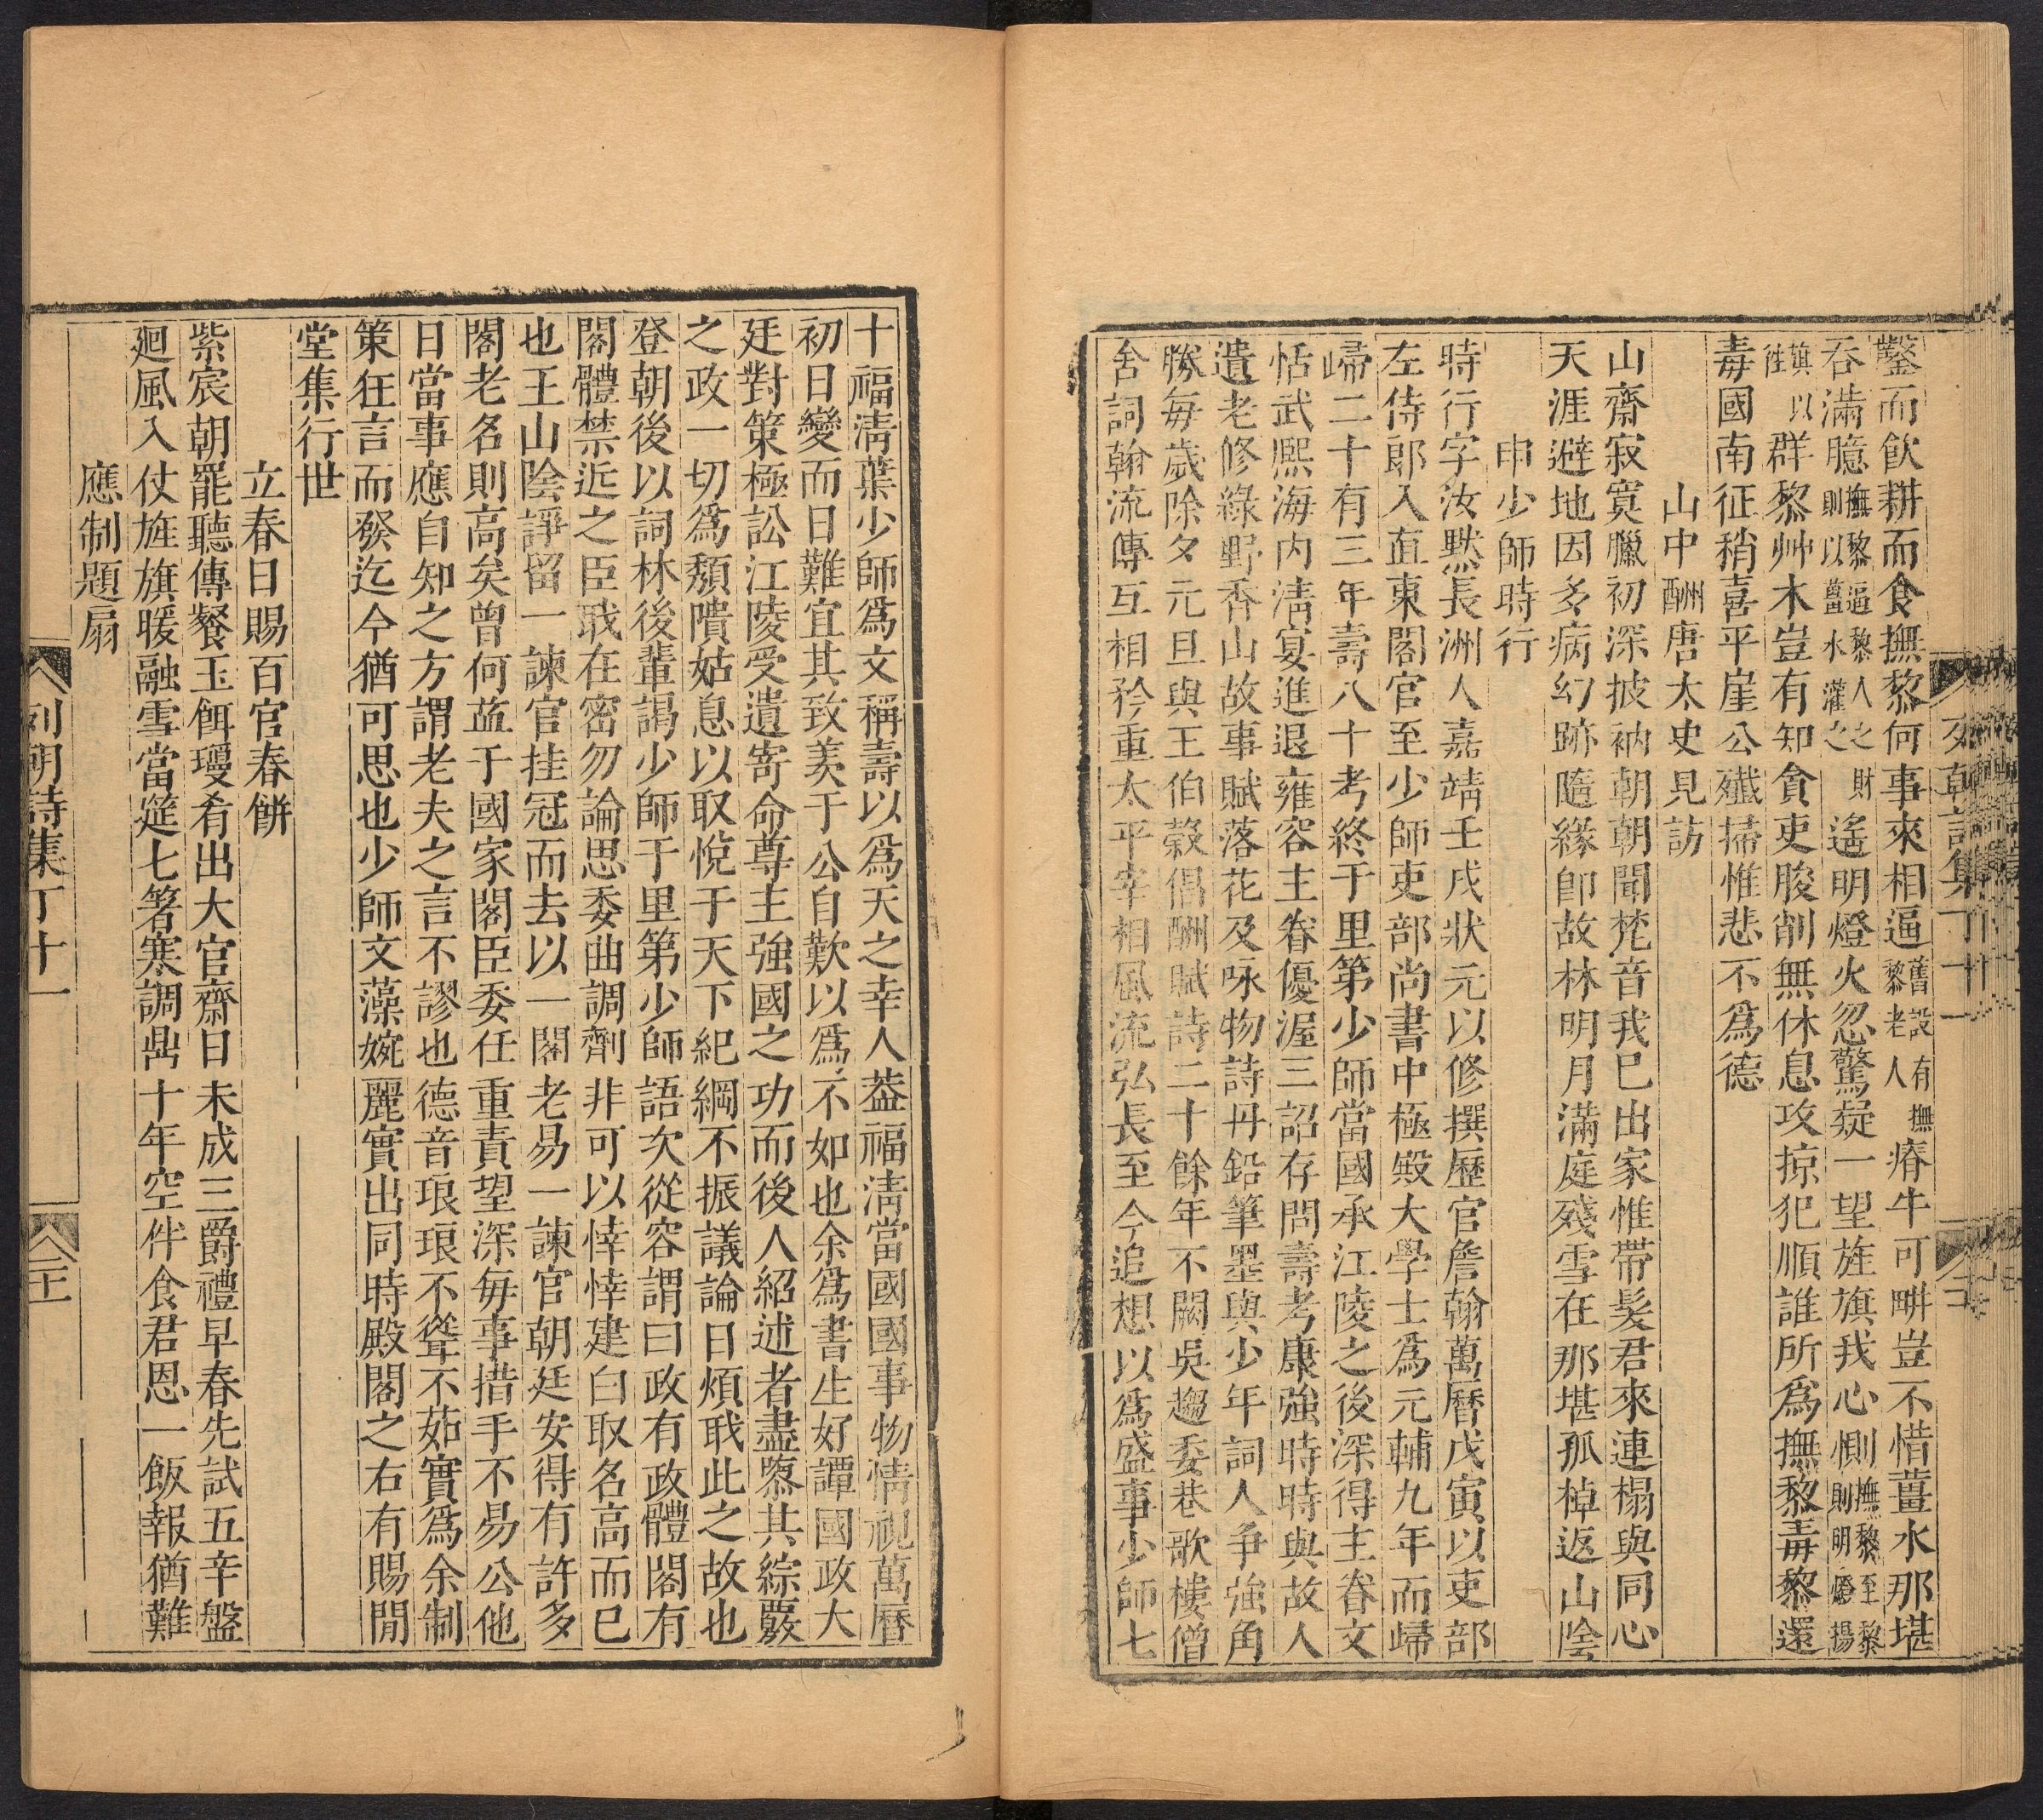 鑿而飲耕而食撫黎何事來相逼舊設有撫黎老人瘠牛可畊豈不惜薑水那堪
吞滿臆撫黎逼黎人之財則以薑水灌之遙明燈火忽驚疑一望旌旗我心惻撫黎至黎則明燈揚
旗以徃群黎艸木豈有知貪吏朘削無休息攻掠犯順誰所爲撫黎毒黎還
毒國南征稍喜平崖公殲掃惟悲不爲德
山中酬唐太史見訪
山齋寂寞臘初深披衲朝朝聞梵音我巳出家惟帶髪君來連榻與同心
天涯避地因多病幻跡隨緣卽故林明月滿庭殘雪在那堪孤棹返山陰
申少師時行
時行字汝黙長洲人嘉靖壬戌狀元以修撰歷官詹翰萬曆戊寅以吏部
左侍郎入直東閣官至少師吏部尚書中極殿大學士爲元輔九年而歸
歸二十有三年壽八十考終于里第少師當國承江陵之後深得主眷文
恬武熙海内淸宴進退雍容主眷優渥三詔存問壽考康強時時與故人
遺老修綠野香山故事賦落花及咏物詩丹鉛筆墨與少年詞人爭強角
勝每歲除夕元旦與王伯榖倡酬賦詩二十餘年不闕吳趨委巷歌樓僧
舍詞翰流傳互相矜重太平宰相風流弘長至今追想以爲盛事少師七
十福淸葉少師爲文稱壽以爲天之幸人葢福淸當國國事物情視萬曆
初日變而日難宜其致羨于公自歎以爲不如也余爲書生好譚國政大
廷對策極訟江陵受遺寄命尊主強國之功而後人紹述者盡隳其綜覈
之政一切爲頽隤姑息以取悅于天下紀綱不振議論日煩职此之故也
登朝後以詞林後輩謁少師于里第少師語次從容謂曰政有政體閣有
閣體禁近之臣职在密勿論思委曲調劑非可以悻悻建白取名高而巳
也王山陰諍留一諫官挂冠而去以一閣老易一諫官朝廷安得有許多
閣老名則高矣曾何益于國家閣臣委任重責望深每事措手不易公他
日當事應自知之方謂老夫之言不謬也德音琅琅不聳不茹實爲余制
策狂言而發迄今猶可思也少師文藻婉麗實出同時殿閣之右有賜閒
堂集行世
立春日賜百官春餅
紫宸朝罷聽傳餐玉餌瓊肴出大官齋日未成三爵禮早春先試五辛盤
廻風入仗旌旗暖融雪當筵七箸寒調鼎十年空伴食君恩一飯報猶難
應制題扇
列朝詩集丁十一